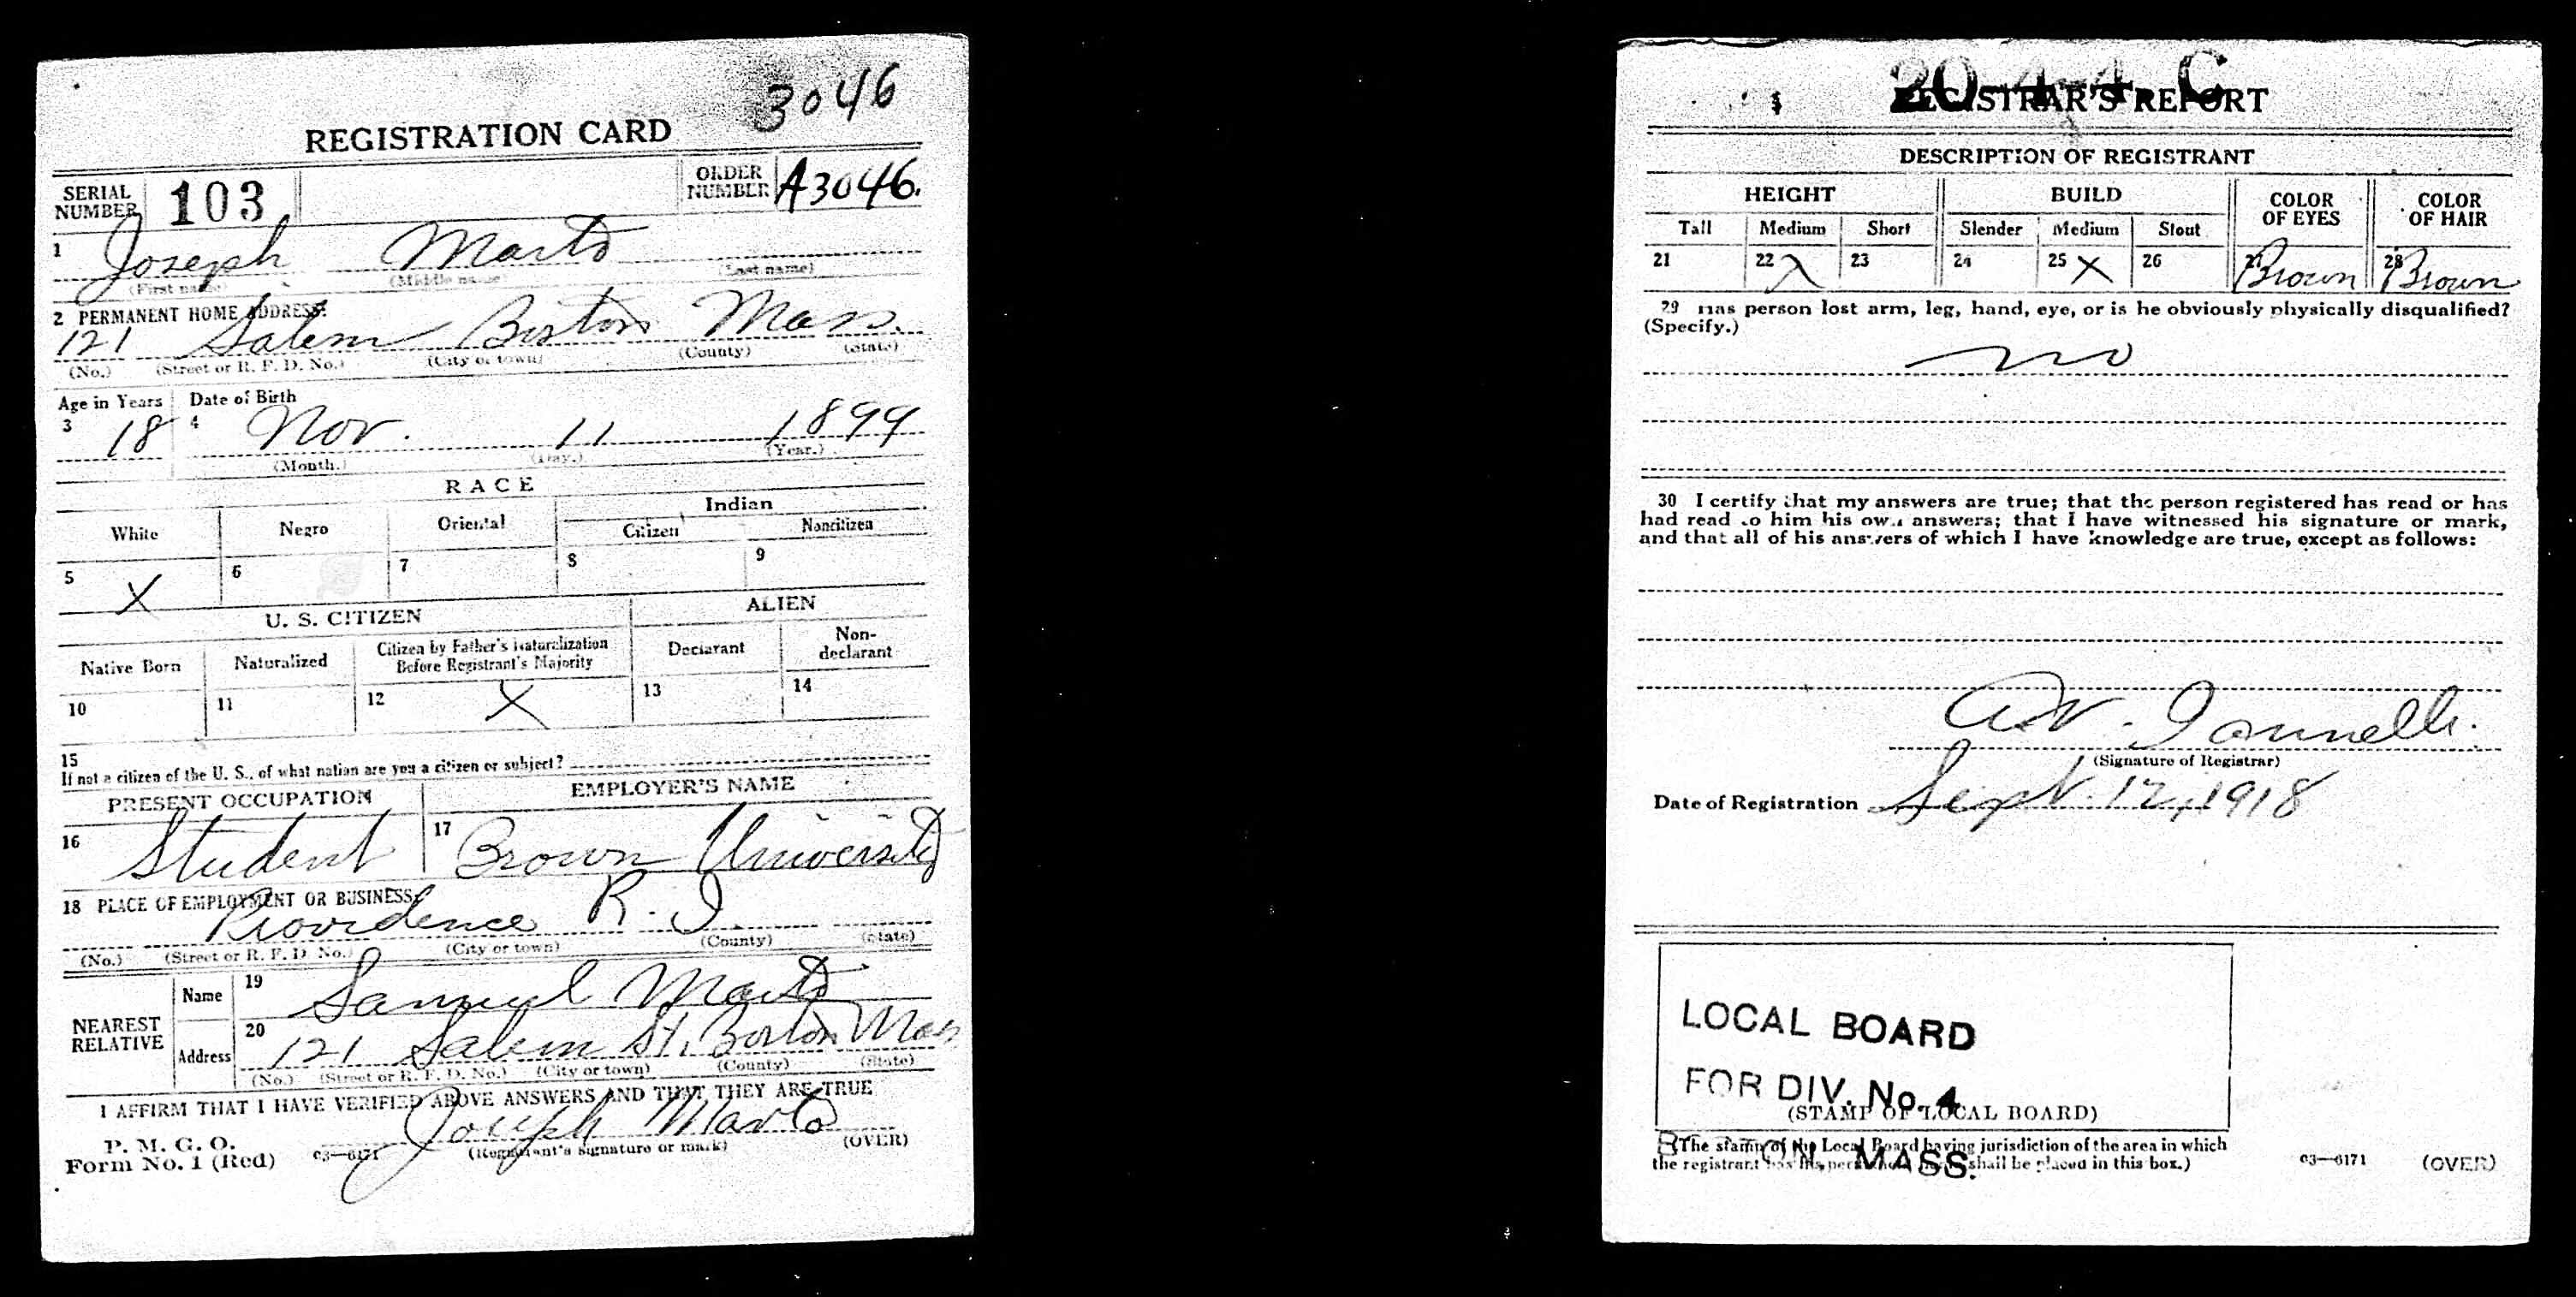 3046
REGISTRATION CARD
SERIAL NUMBER 103 ORDER NUMBER A3046.
1 Joseph Marto
(First name) (Middle name) (Last name)
2 PERMANENT HOME ADDRESS:
121 Salem Boston Mass.
(No.) (Street or R. F. D. No.) (City or town) (County) (State)
Age in Years Date of Birth
3 18 4 Nov. 11 1899
(Month.) (Day.) (Year.)
RACE
White Negro Oriental Indian
Citizen Noncitizen
5 X 6 7 8 9
U. S. CITIZEN ALIEN
Native Born Naturalized Citizen by Father's Naturalization Before Registrant's Majority Declarant Non-declarant
10 11 12 X 13 14
15
If not a citizen of the U. S., of what nation are you a citizen or subject?
PRESENT OCCUPATION EMPLOYER'S NAME
16 Student 17 Brown University
18 PLACE OF EMPLOYMENT OR BUSINESS:
Providence R. I.
(No.) (Street or R. F. D. No.) (City or town) (County) (State)
NEAREST RELATIVE
Name 19 Samuel Marto
Address 20 121 Salem St. Boston Mass
(No.) (Street or R. F. D. No.) (City or town) (County) (State)
I AFFIRM THAT I HAVE VERIFIED ABOVE ANSWERS AND THAT THEY ARE TRUE
Joseph Marto
P. M. G. O.
Form No. 1 (Red) 03—6171 (Registrant's signature or mark) (OVER)
20-4-4. C
REGISTRAR'S REPORT
DESCRIPTION OF REGISTRANT
HEIGHT BUILD COLOR OF EYES COLOR OF HAIR
Tall Medium Short Slender Medium Stout
21 22 X 23 24 25 X 26 27 Brown 28 Brown
29 Has person lost arm, leg, hand, eye, or is he obviously physically disqualified?
(Specify.)
no
30 I certify that my answers are true; that the person registered has read or has
had read to him his own answers; that I have witnessed his signature or mark,
and that all of his answers of which I have knowledge are true, except as follows:
A. V. Iannelli.
(Signature of Registrar)
Date of Registration Sept. 12, 1918
LOCAL BOARD
FOR DIV. No. 4
(STAMP OF LOCAL BOARD)
BOSTON, MASS.
(The stamp of the Local Board having jurisdiction of the area in which
the registrant has his permanent home shall be placed in this box.)
03—6171 (OVER)